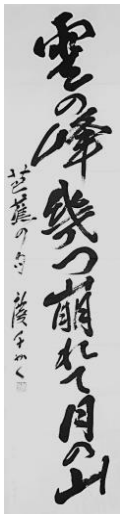 雲の峰幾つ崩れて月の山
芭蕉の句